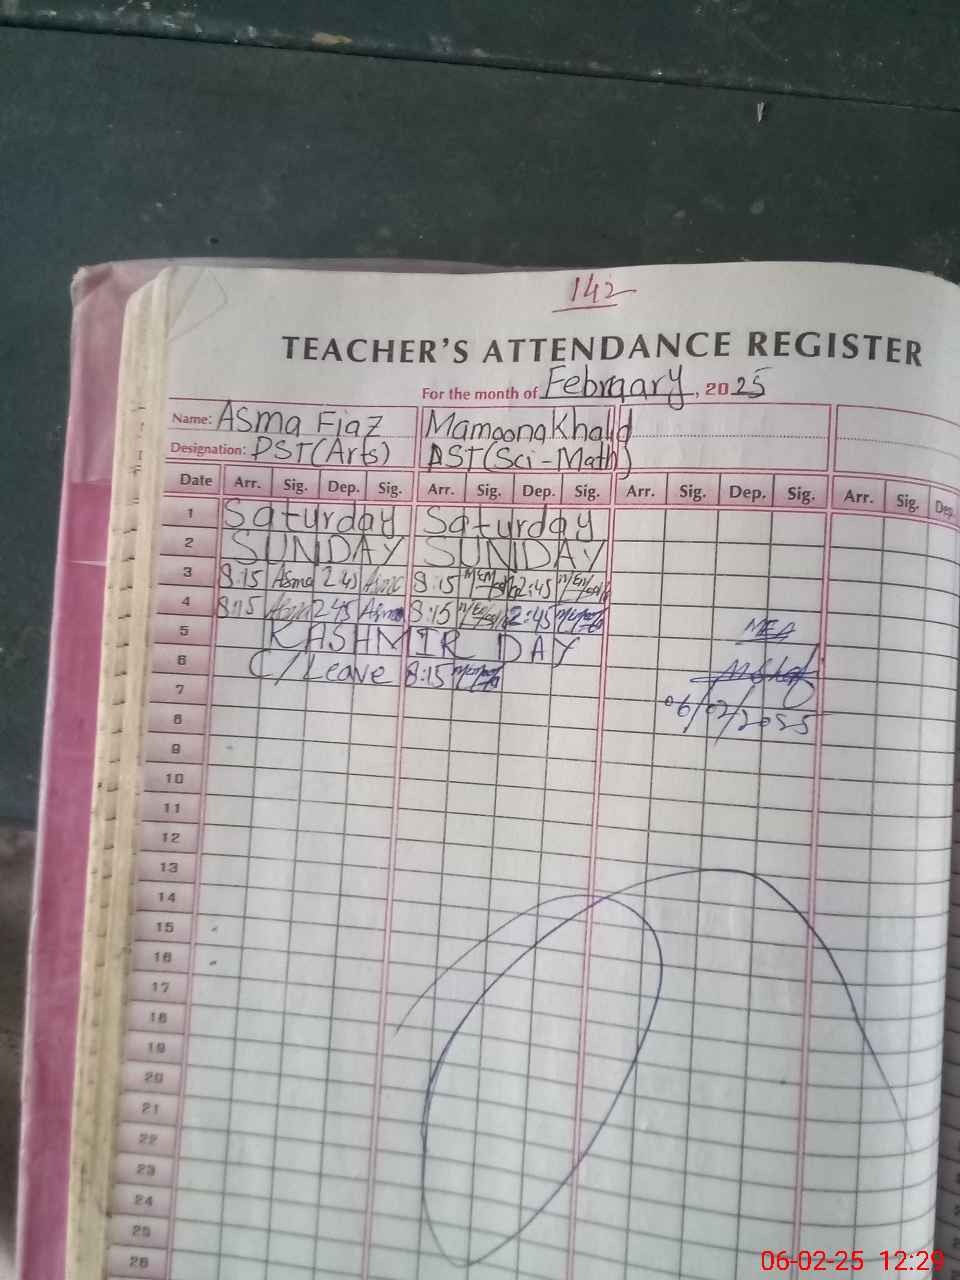 142
TEACHER'S ATTENDANCE REGISTER
For the month of February, 2025
Name: Asma Fiaz Mamoona Khalid
Designation: PST(Arts) PST(Sci-Math)
Date Arr. Sig. Dep. Sig. Arr. Sig. Dep. Sig. Arr. Sig. Dep. Sig. Arr. Sig. Dep.
1 Saturday Saturday
2 SUNDAY SUNDAY
3 8:15 Asma 2:45 Asma 8:15 2:45
4 8:15 Asma 2:45 Asma 8:15 2:45
5 KASHMIR DAY
MEA
6 C/Leave 8:15
7
06/02/2025
8
9
10
11
12
13
14
15
16
17
18
19
20
21
22
23
24
25
26
06-02-25 12:29